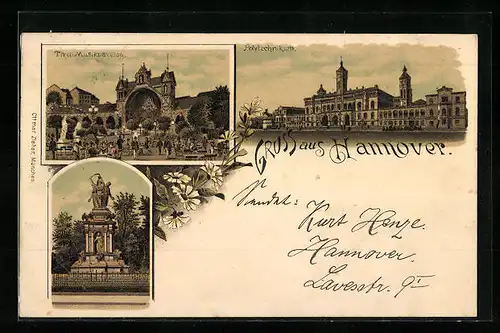 Tivoli-Musikpavillon.
Polytechnikum.
Ottmar Zieher, München.
Gruss aus Hannover.
Sendet:
Kurt Henze.
Hannover.
Lavesstr. 9I